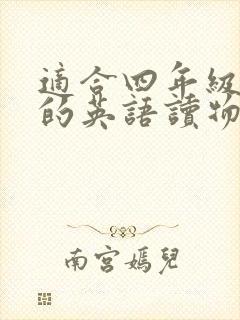 適合四年級
的英語讀物
南宮嫣兒